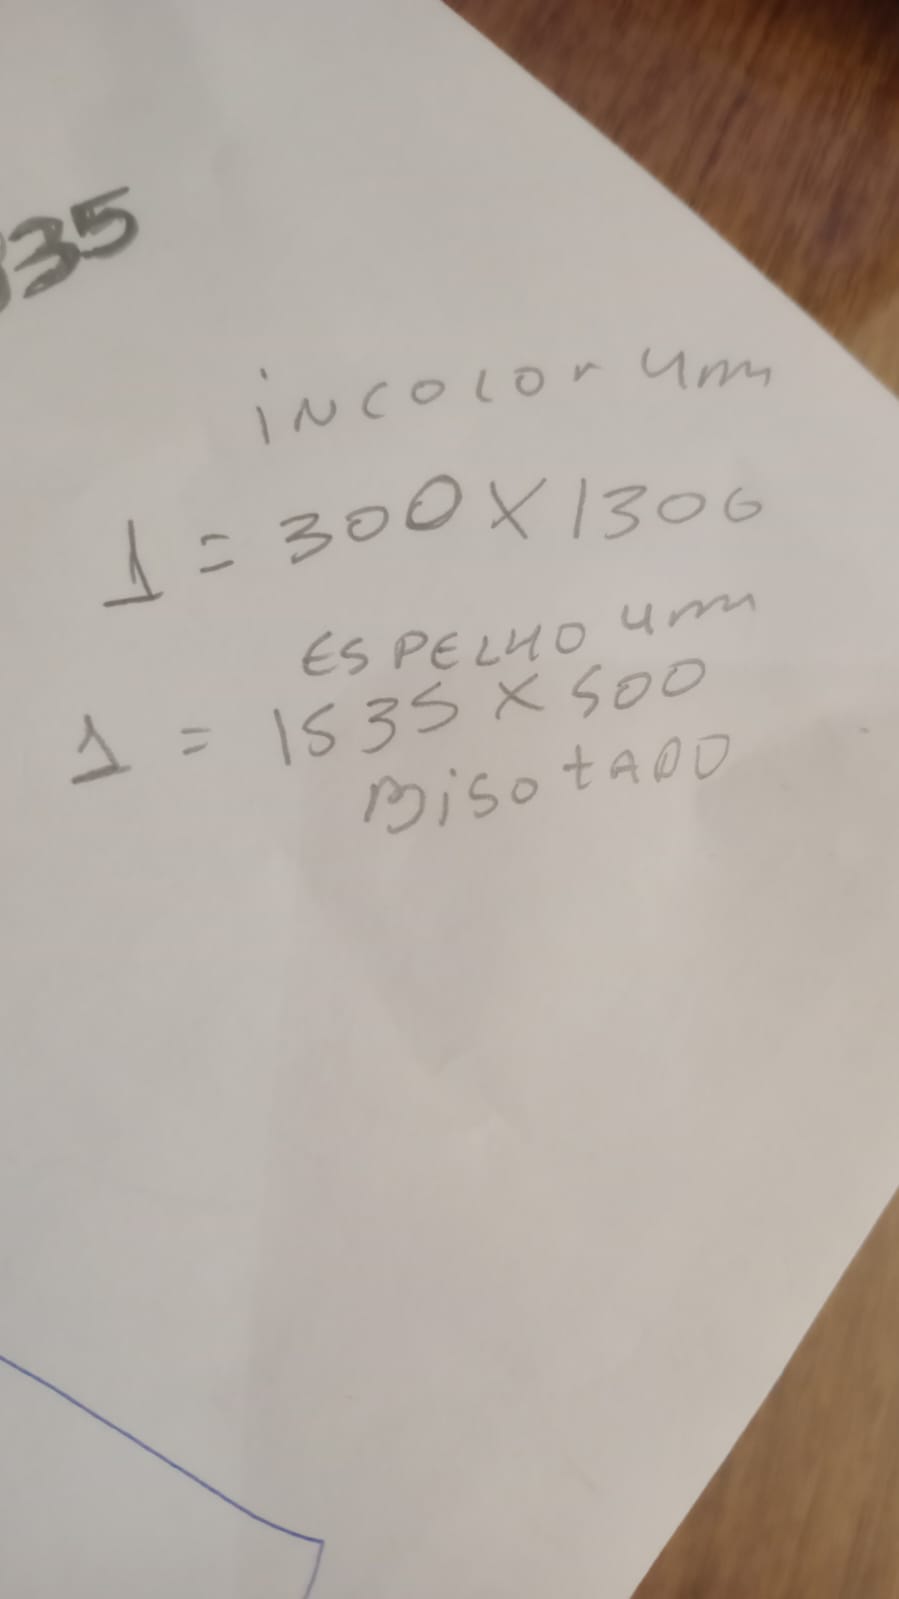 35
iNCOLOr 4mm
1 = 300 X 1300
ESPELHO 4mm
1 = 1535 X 500
BisotADO